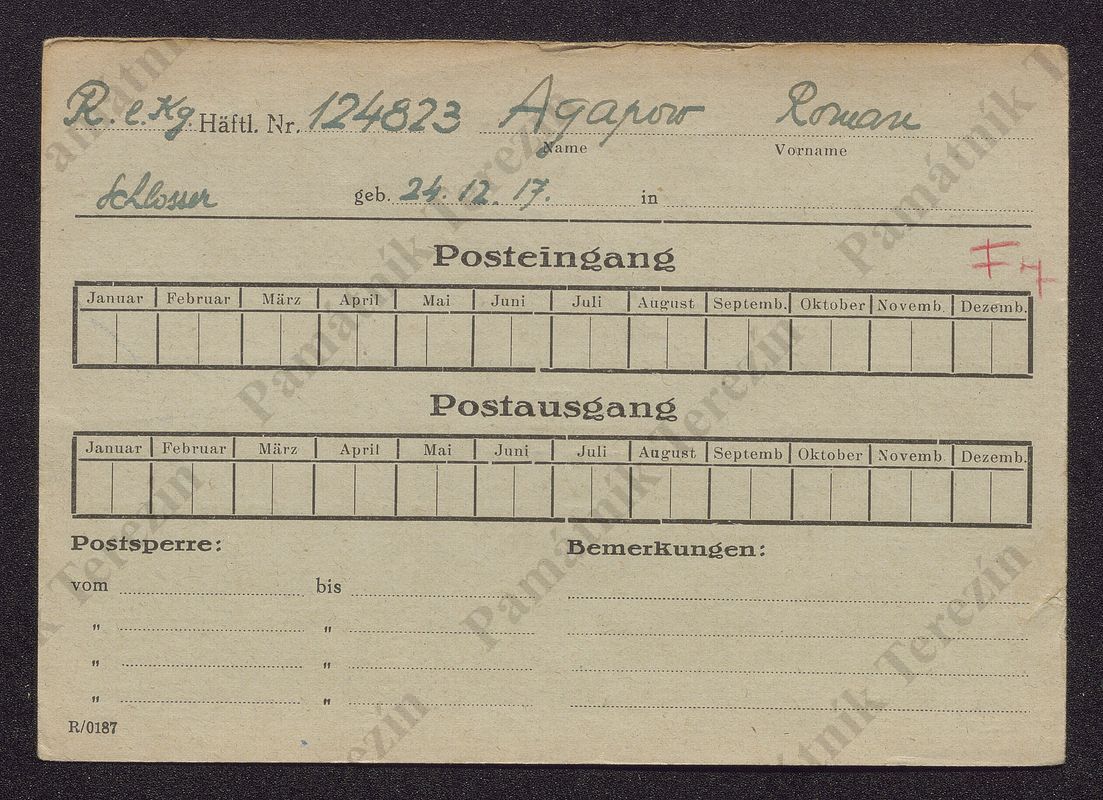 R. e. Kg Häftl. Nr. 124823 Agapow Roman
Name Vorname
Schlosser geb. 24. 12. 17. in
Posteingang
Januar Februar März April Mai Juni Juli August Septemb. Oktober Novemb. Dezemb.
Postausgang
Januar Februar März April Mai Juni Juli August Septemb Oktober Novemb. Dezemb.
Postsperre: Bemerkungen:
vom bis
" "
" "
" "
R/0187
Památník Terezín